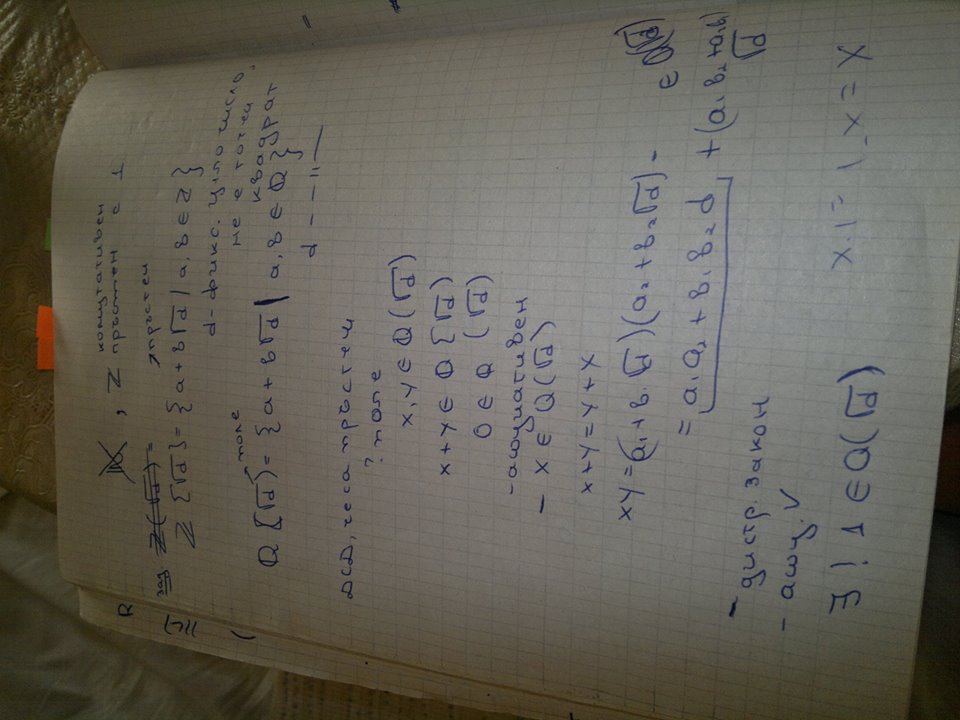 R , ℤ комутативен
пръстен с 1
зад
ℤ[√d] = { a + b√d | a, b ∈ ℤ } пръстен
d - фикс. цяло число,
не е точен
квадрат
ℚ[√d] = { a + b√d | a, b ∈ ℚ } поле
d - - ‖ -
ДСД, че са пръстени
? поле
x, y ∈ ℚ(√d)
x + y ∈ ℚ[√d]
0 ∈ ℚ (√d)
- асоциативен
- x ∈ ℚ(√d)
x + y = y + x
xy = (a₁ + b₁√d)(a₂ + b₂√d) -
= a₁a₂ + b₁b₂d + (a₁b₂ + a₂b₁)√d ∈ ℚ(√d)
- дистр. закон
- асоц. ✓
∃! 1 ∈ ℚ(√d) x.1 = 1.x = x